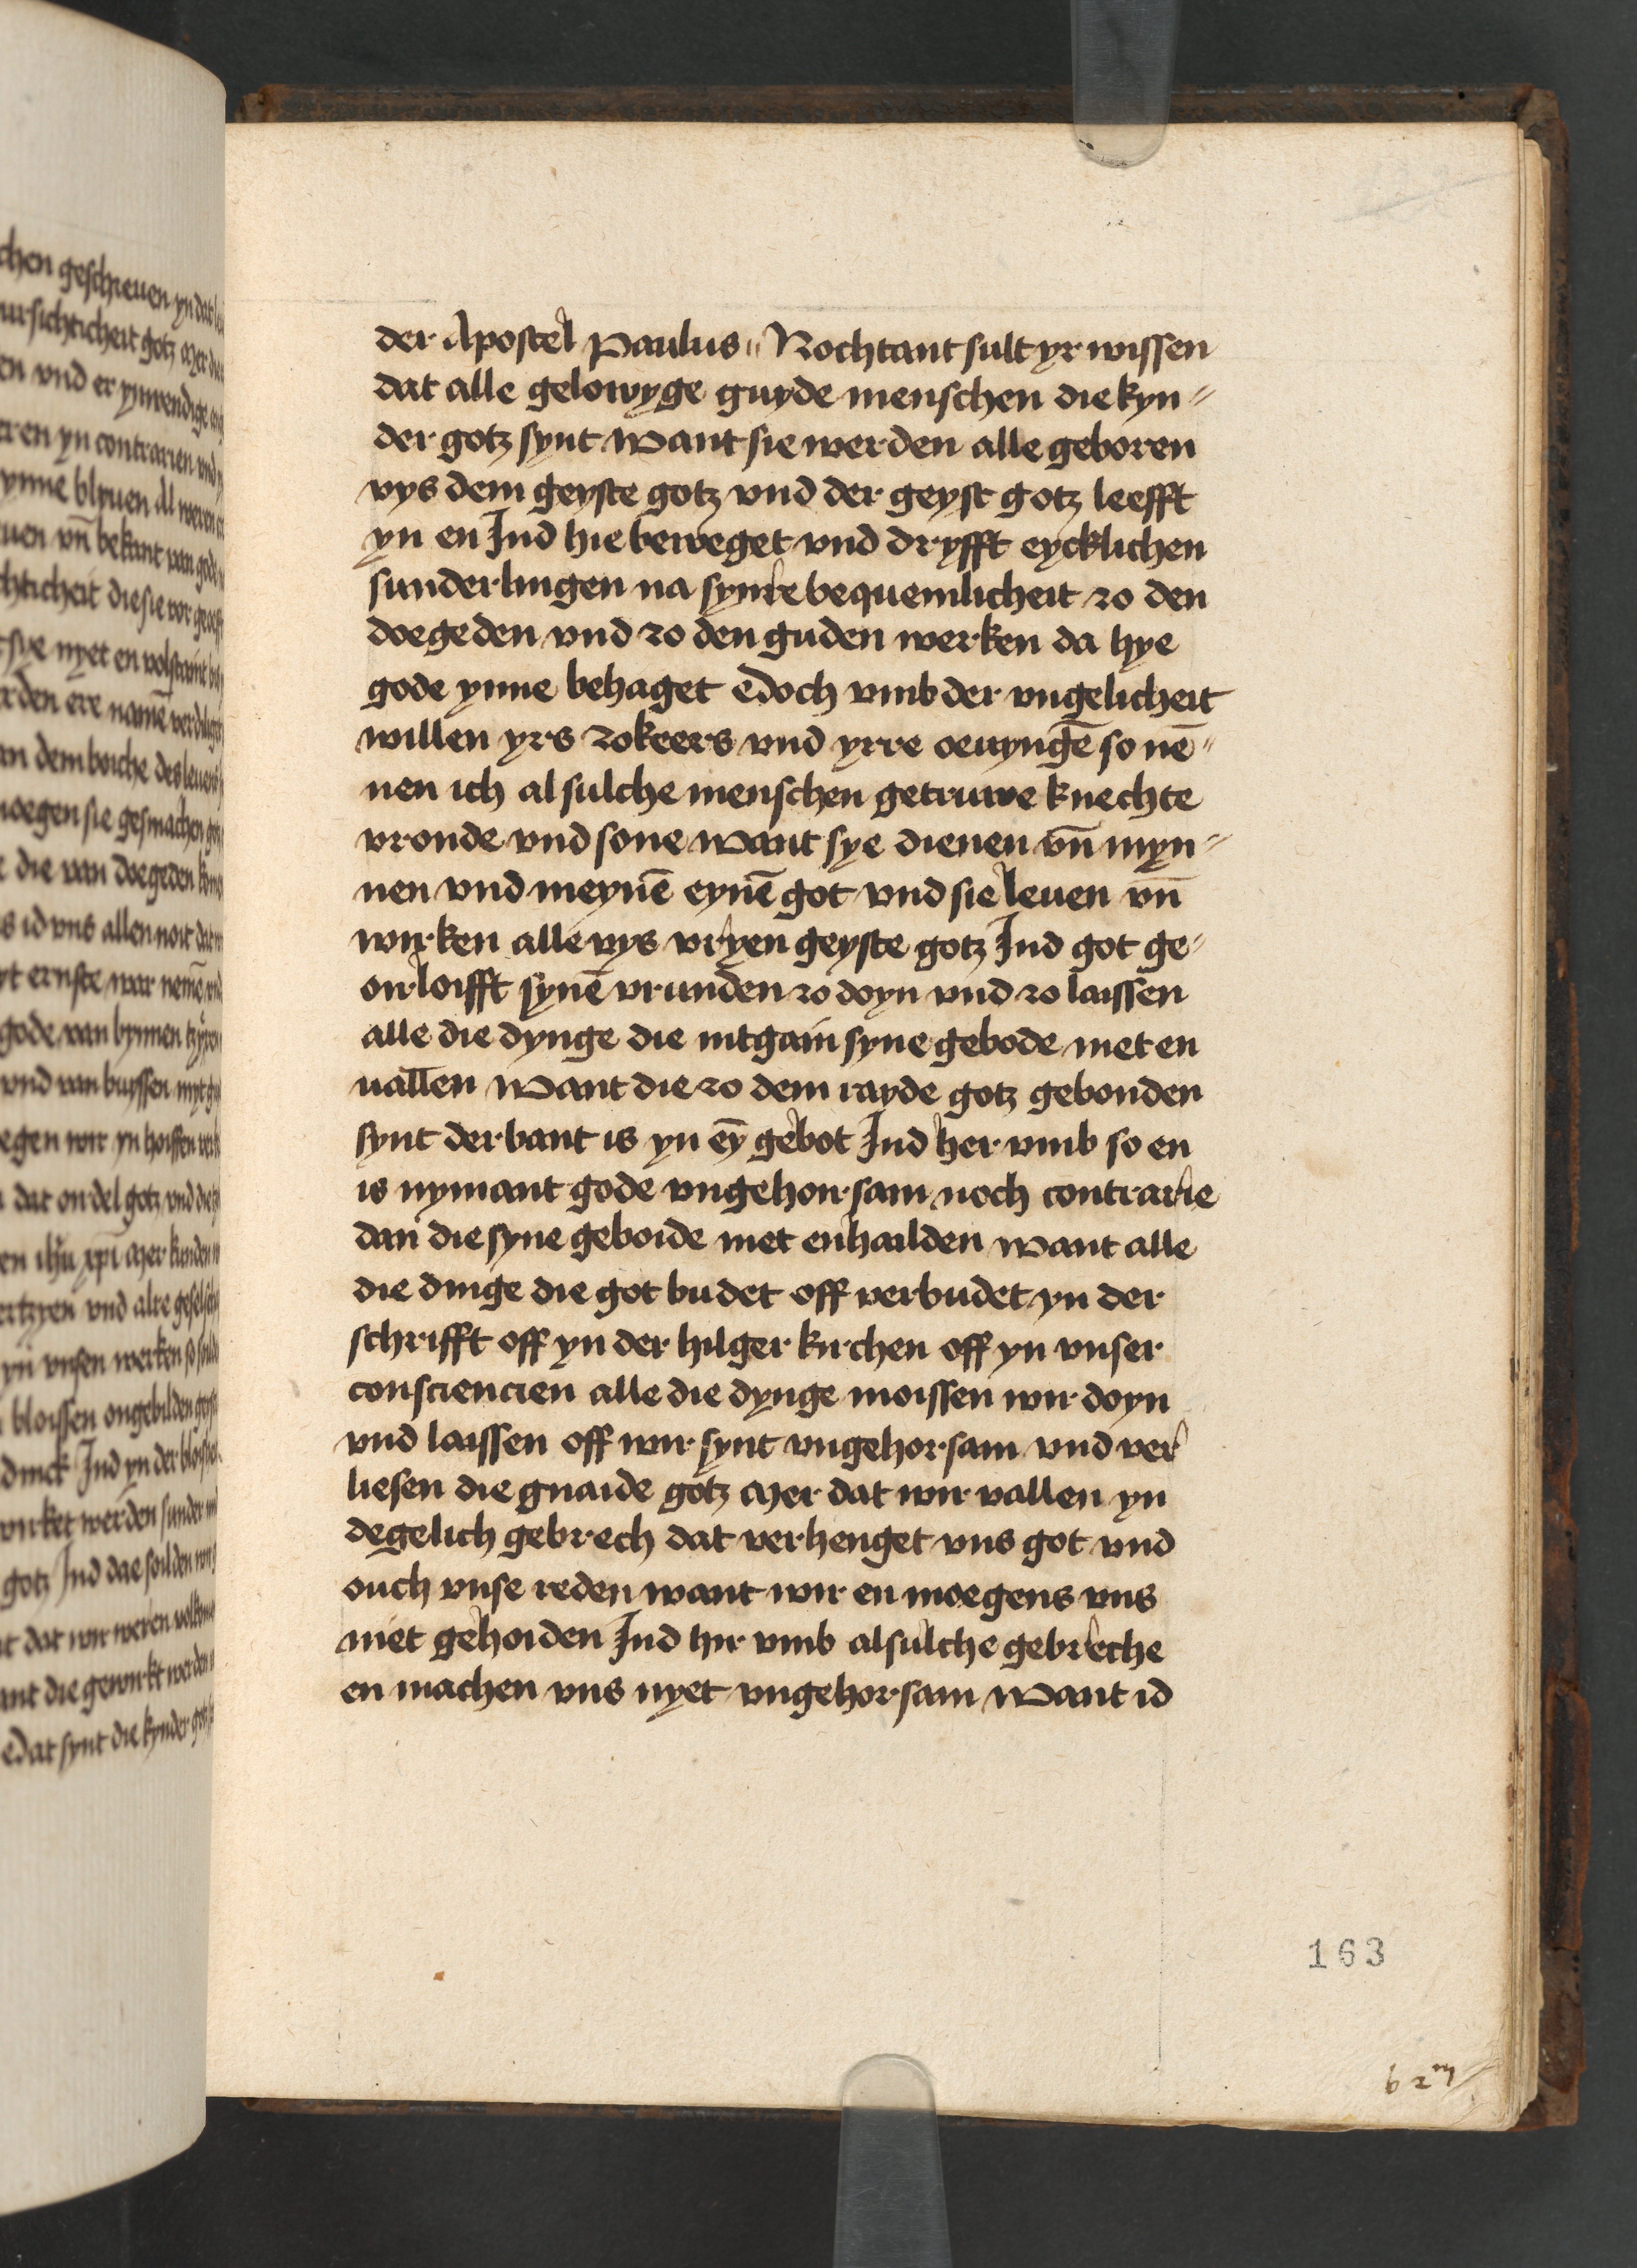 der Apostel Paulus " Nochtant sult yr wissen
dat alle gelowyge guyde menschen die kyn⸗
der gotz synt Want sie werden alle geboren
vys dem geyste gotz vnd der geyst gotz leefft
yn en Ind hie beweget vnd dryfft eycklichen
sunderlingen na synre bequemlicheit zo den
doegeden vnd zo den guden werken da hye
gode ynne behaget edoch vmb der vngelicheit
willen yrs zokeers vnd yrre oeuyngē so nē⸗
nen ich alsulche menschen getruwe knechte
vronde vnd sone Want sye dienen vn̄ myn⸗
nen vnd meynē eynē got vnd sie leuen vn̄
wirken alle vys vryen geyste gotz Ind got ge⸗
orloifft synē vrunden zo doyn vnd zo laissen
alle die dynge die intgain syne gebode niet en
uallen Want die zo dem rayde gotz gebonden
synt der bant is yn eȳ gebot Ind her vmb so en
is nymant gode vngehorsam noch contrarie
dan die syne geboide niet enhailden Want alle
die dinge die got budet off verbudet yn der
schrifft off yn der hilger kirchen off yn vnser
consciencien alle die dynge moissen wir doyn
vnd laissen off wir synt vngehorsam vnd ver
liesen die gnaide gotz Mer dat wir vallen yn
degelich gebrech dat verhenget vns got vnd
ouch vnse reden want wir en moegens vns
niet gehoiden Ind hir vmb alsulche gebreche
en machen vns nyet vngehorsam Want id
163